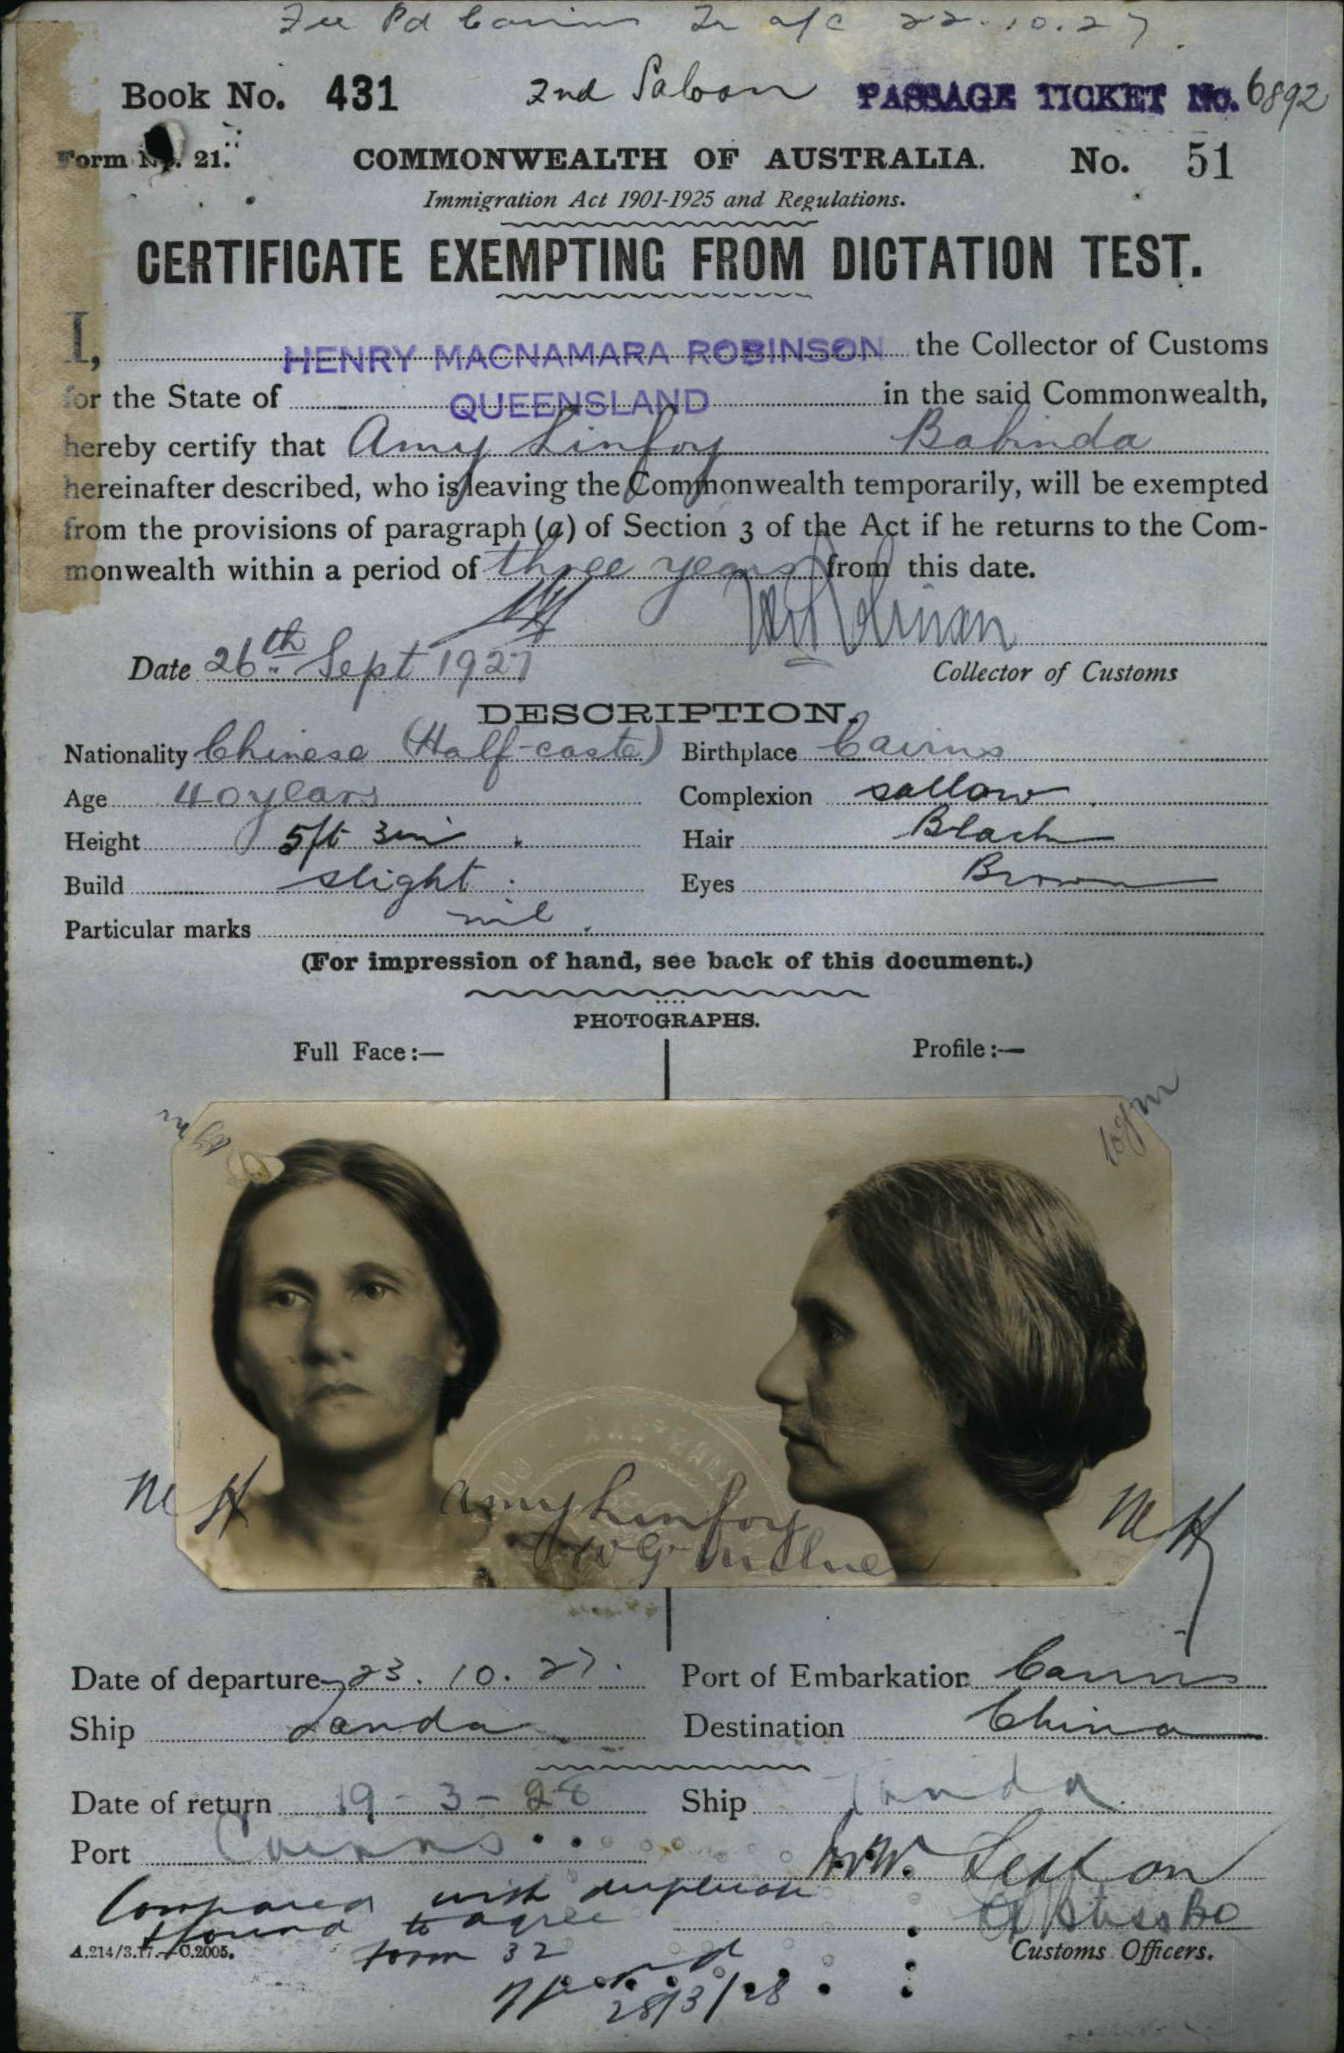 Fee Pd Cairns Tr a/c 22.10.27.
Book No. 431 2nd Saloon PASSAGE TICKET No. 6892
Form No. 21. COMMONWEALTH OF AUSTRALIA. No. 51
Immigration Act 1901-1925 and Regulations.
CERTIFICATE EXEMPTING FROM DICTATION TEST.
I, HENRY MACNAMARA ROBINSON the Collector of Customs
for the State of QUEENSLAND in the said Commonwealth,
hereby certify that Amy Linfoy Babinda
hereinafter described, who is leaving the Commonwealth temporarily, will be exempted
from the provisions of paragraph (a) of Section 3 of the Act if he returns to the Com-
monwealth within a period of three years from this date.
Date 26th Sept 1927 Collector of Customs
DESCRIPTION.
Nationality Chinese (Half-caste) Birthplace Cairns
Age 40 years Complexion sallow
Height 5ft 3in Hair Black
Build slight Eyes Brown
Particular marks nil
(For impression of hand, see back of this document.)
PHOTOGRAPHS.
Full Face:— Profile:—
MH Amy Linfoy MH
W G Milne
Date of departure 23.10.27. Port of Embarkation Cairns
Ship Tanda Destination China
Date of return 19-3-28 Ship Tanda
Port Cairns
Compared with duplicate
& found to agree
A.214/3.17.—C.2005. Form 32 Customs Officers.
28/3/28